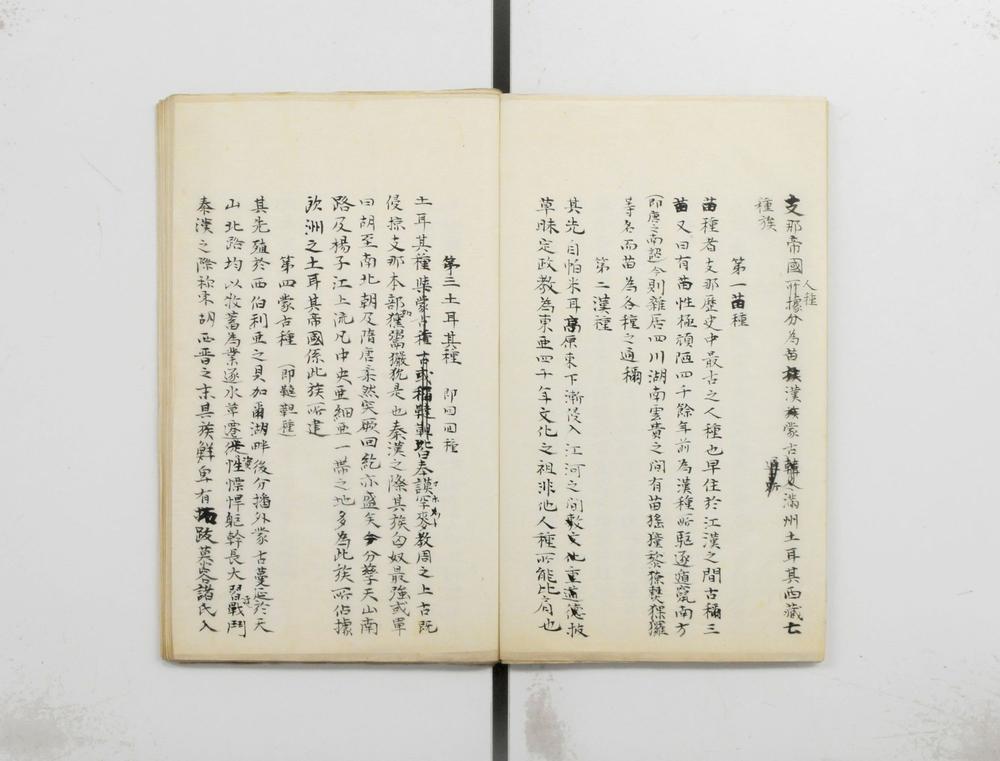 支那帝國人種所據分為苗漢蒙古滿州土耳其西藏七
種族
第一苗種
苗種者支那歷史中最古之人種也早住於江漢之間古稱三
苗又曰有苗性極頑陋四千餘年前為漢種所駆逐遁竄南方
(即唐之南詔)今則雜居四川湖南雲貴之間有苗猺獞黎猺獛猓玀
等名而苗為各種之通稱
第二漢種
其先自怕米耳高原東下漸侵入江河之間敷文化重道德披
草昧定政教為東亜四千年文化之祖非他人種所能比肩也
第三土耳其種 即回回種
土耳其種 奉謨罕麥教周之上古既
侵掠支那本部獯鬻玁狁是也秦漢之際其族匈奴最強或單
曰胡至南北朝及隋唐柔然突厥回紇亦盛矣今分孳天山南
路及楊子江上流凡中央亜細亜一帶之地多為此族所佔據
欧洲之土耳其帝國係此族所建
第四蒙古種 (即韃靼種)
其先殖於西伯利亜之貝加爾湖畔後分播外蒙古蔓延於天
山北路均以牧蓄為業逐水草遷徙性慓悍軀幹長大習戰鬥
秦漢之際稱東胡西晋之末其族鮮卑有拓跋慕容諸氏入